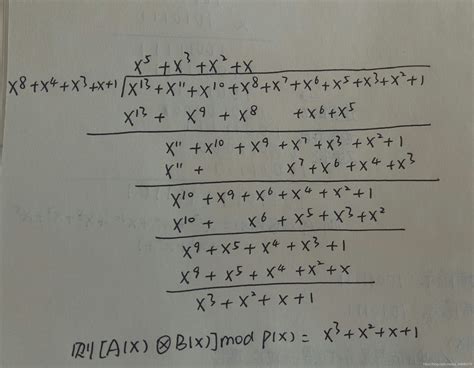 x⁵ + x³ + x² + x
x⁸ + x⁴ + x³ + x + 1 √ x¹³ + x¹¹ + x¹⁰ + x⁸ + x⁷ + x⁶ + x⁵ + x³ + x² + 1
x¹³ + x⁹ + x⁸ + x⁶ + x⁵
x¹¹ + x¹⁰ + x⁹ + x⁷ + x³ + x² + 1
x¹¹ + x⁷ + x⁶ + x⁴ + x³
x¹⁰ + x⁹ + x⁶ + x⁴ + x² + 1
x¹⁰ + x⁶ + x⁵ + x³ + x²
x⁹ + x⁵ + x⁴ + x³ + 1
x⁹ + x⁵ + x⁴ + x² + x
x³ + x² + x + 1
则[A(x) ⊗ B(x)] mod P(x) = x³ + x² + x + 1